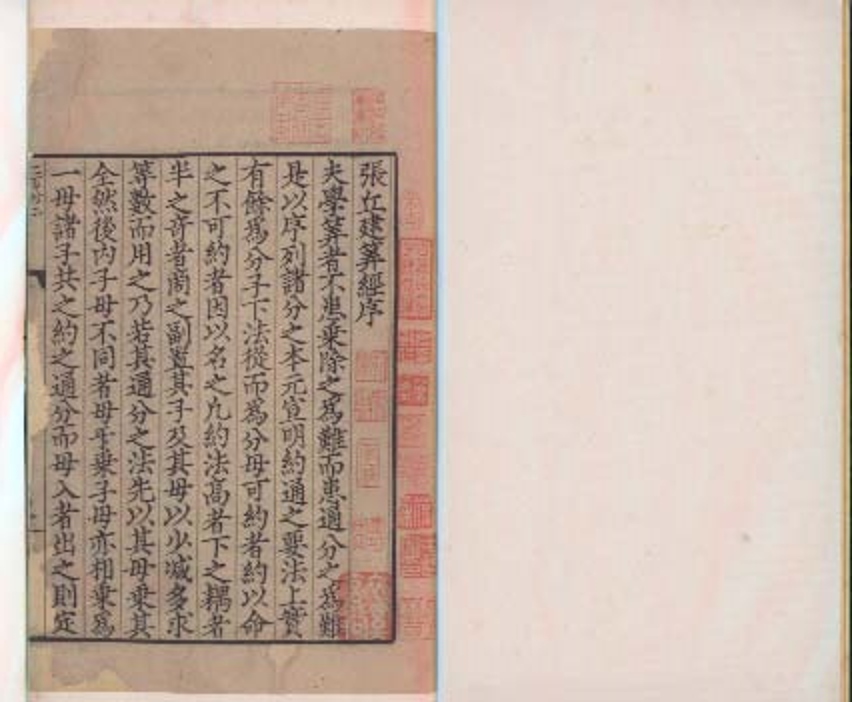 張丘建筭經序
夫學筭者不患乗除之為難而患通分之為難
是以序列諸分之本元宣明約通之要法上實
有餘為分子下法從而為分母可約者約以命
之不可約者因以名之凢約法高者下之耦者
半之竒者商之副置其子及其母以少减多求
等數而用之乃若其通分之法先以其母乗其
全然後内子母不同者母乗子母亦相乗為
一母諸子共之約之通分而母入者出之則定